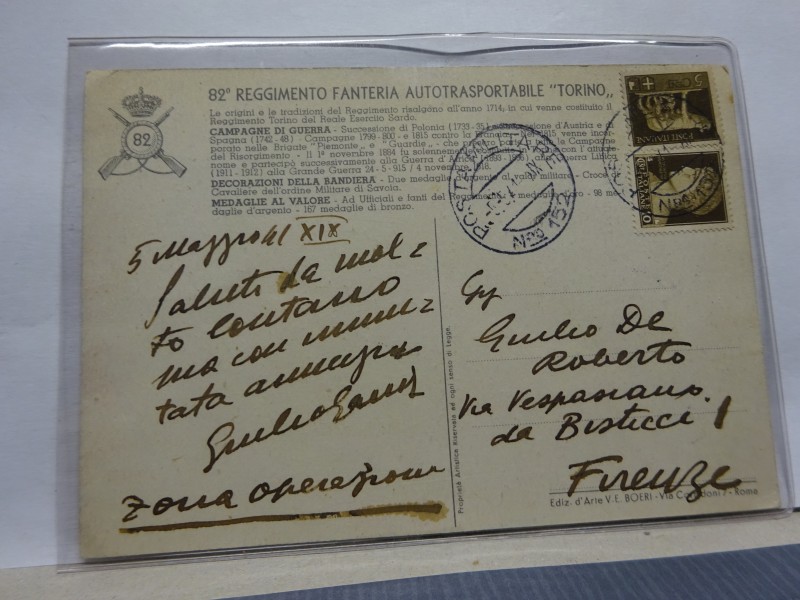 82
82º REGGIMENTO FANTERIA AUTOTRASPORTABILE "TORINO„
Le origini e le tradizioni del Reggimento risalgono all'anno 1714, in cui venne costituito il
Reggimento Torino del Reale Esercito Sardo.
CAMPAGNE DI GUERRA - Successione di Polonia (1733-35) d'Austria e di
Spagna (1742-48) Campagne 1799-800 - e 1815 contro la Francia 1815 venne incor-
porato nelle Brigate "Piemonte„ e "Guardie„ che Campagne
del Risorgimento - Il 1º novembre 1884 fu solennemente l'attuale
nome e partecipò successivamente alla Guerra d' Libica
(1911-1912) alla Grande Guerra 24-5-915 / 4 novembre
DECORAZIONI DELLA BANDIERA - Due medaglie valor militare - Croce de
Cavaliere dell'ordine Militare di Savoia.
MEDAGLIE AL VALORE - Ad Ufficiali e fanti del Reggimento medaglie oro - 98 me-
daglie d'argento - 167 medaglie di bronzo.
5 Maggio 41 XIX
Saluti da mol-
to lontano
ma con immu-
tata amicizia
Giulio
Zona operazioni
POSTA
Nº 152
POSTE ITALIANE
Giulio De
Roberto
Via Vespasiano
da Bisticci 1
Firenze
Proprietà Artistica Riservata ad ogni senso di Legge.
Ediz. d'Arte V. E. BOERI - Via 7 - Rome